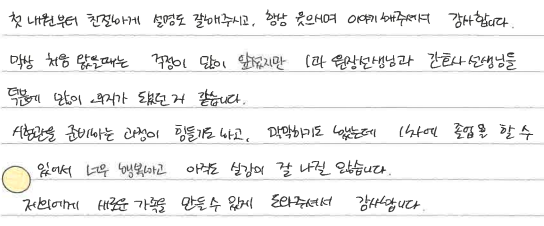 첫 내원부터 친절하게 설명도 잘해주시고, 항상 웃으시며 이야기해주셔서 감사합니다.
막상 처음 왔을때는 걱정이 많이 앞섰지만 1과 원장선생님과 간호사 선생님들
덕분에 많이 의지가 되었던거 같습니다.
시험관을 준비하는 과정이 힘들기도 하고, 막막하기도 했는데 1차에 졸업을 할 수
있어서 너무 행복하고 아직도 실감이 잘 나질 않습니다.
저희에게 새로운 가족을 만들 수 있게 도와주셔서 감사합니다.